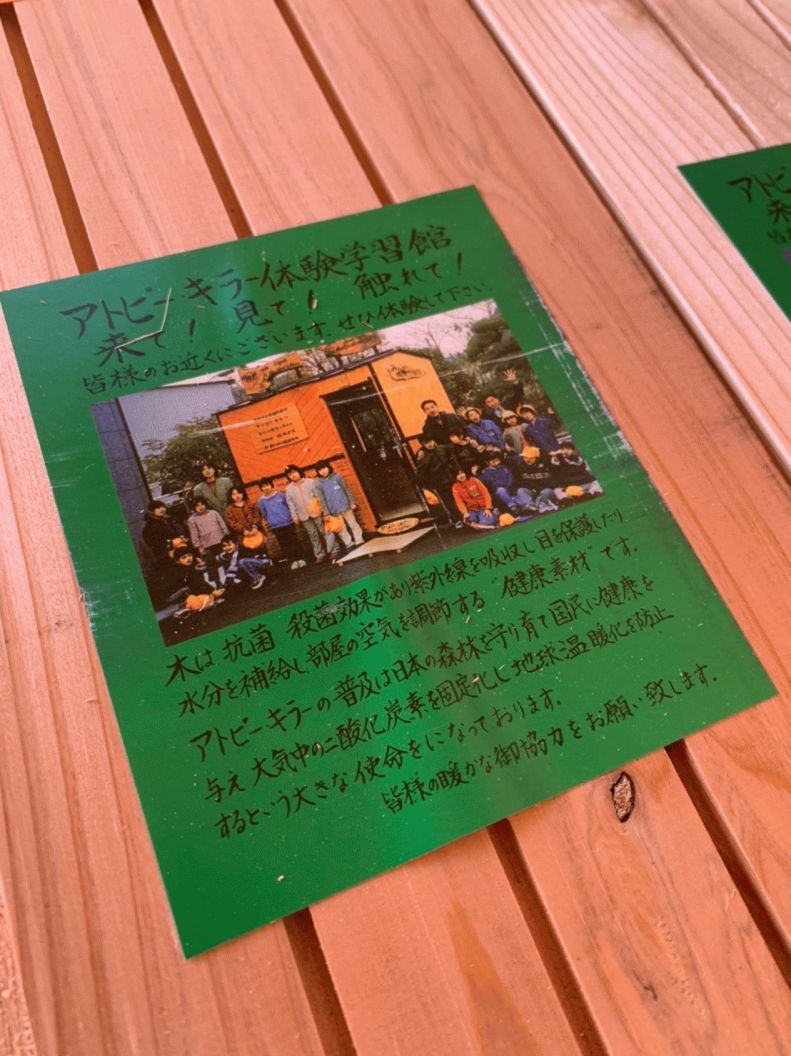 アトピーキラー体験学習館
来て！ 見て！ 触れて！
皆様のお近くにございます。ぜひ体験して下さい。
木は 抗菌 殺菌効果があり紫外線を吸収し目を保護したり
水分を補給し部屋の空気を調節する "健康素材" です。
アトピーキラーの普及は日本の森林を守り育て国民に健康を
与え大気中の二酸化炭素を固定化し地球温暖化を防止
するという大きな使命をになっております。
皆様の暖かな御協力をお願い致します。
アトピ
来
皆